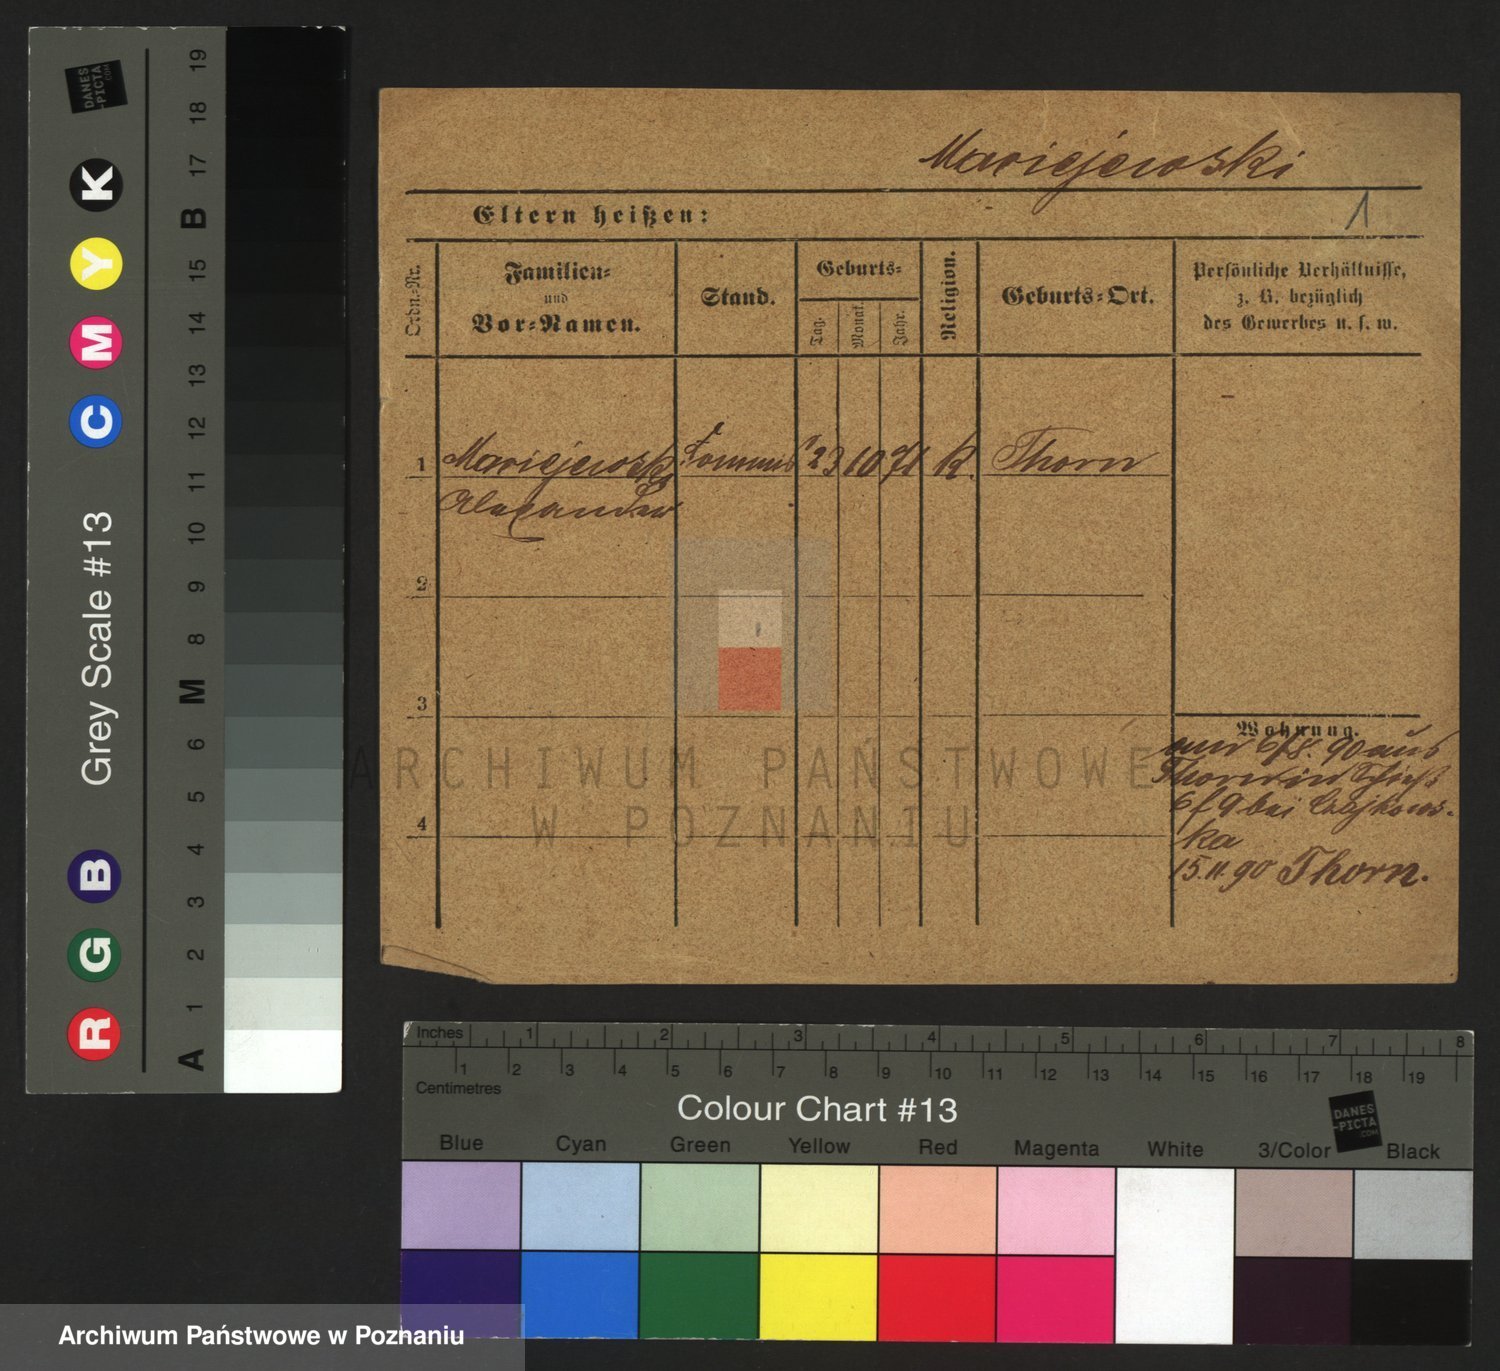 Maciejewski
1
Eltern heißen:
Ordn.-Nr.
Familien-
und
Vor-Namen.
Stand.
Geburts-
Tag.
Monat.
Jahr.
Religion.
Geburts-Ort.
Persönliche Verhältnisse,
z. B. bezüglich
des Gewerbes u. s. w.
1 Maciejewski Commis 23 10 71 k. Thorn
Alexander
2
3
4
Wohnung.
6/8. 90 aus
Thorn in Schieß
6 f 9 bei Czajkows-
ka
15.11.90 Thorn.
ARCHIWUM PAŃSTWOWE
W POZNANIU
Grey Scale #13
DANES
-PICTA
.COM
K
Y
M
C
B
G
R
A 1 2 3 4 5 6 M 8 9 10 11 12 13 14 15 B 17 18 19
Inches 1 2 3 4 5 6 7 8
Centimetres 1 2 3 4 5 6 7 8 9 10 11 12 13 14 15 16 17 18 19
Colour Chart #13
DANES
-PICTA
.COM
Blue Cyan Green Yellow Red Magenta White 3/Color Black
Archiwum Państwowe w Poznaniu